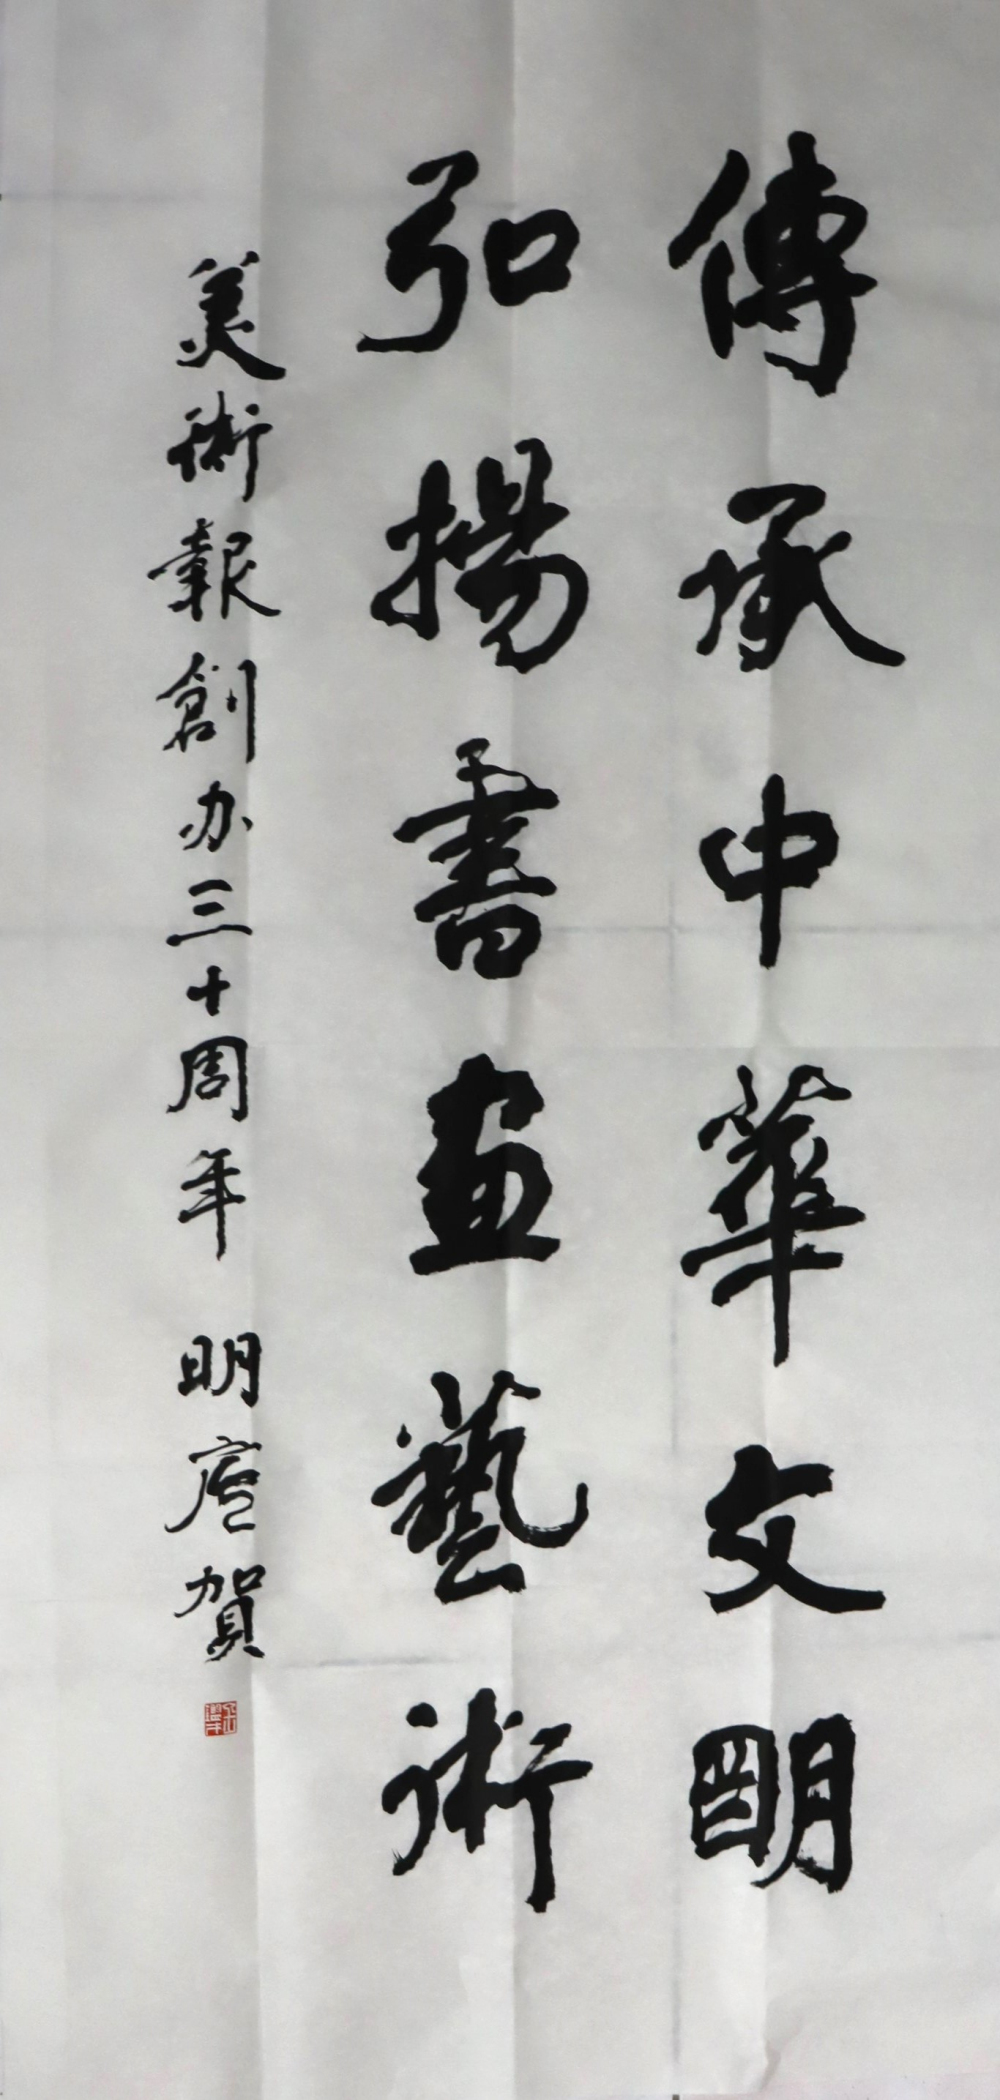 傳承中華文明
弘揚書画藝術
美術報創办三十周年 明 賀